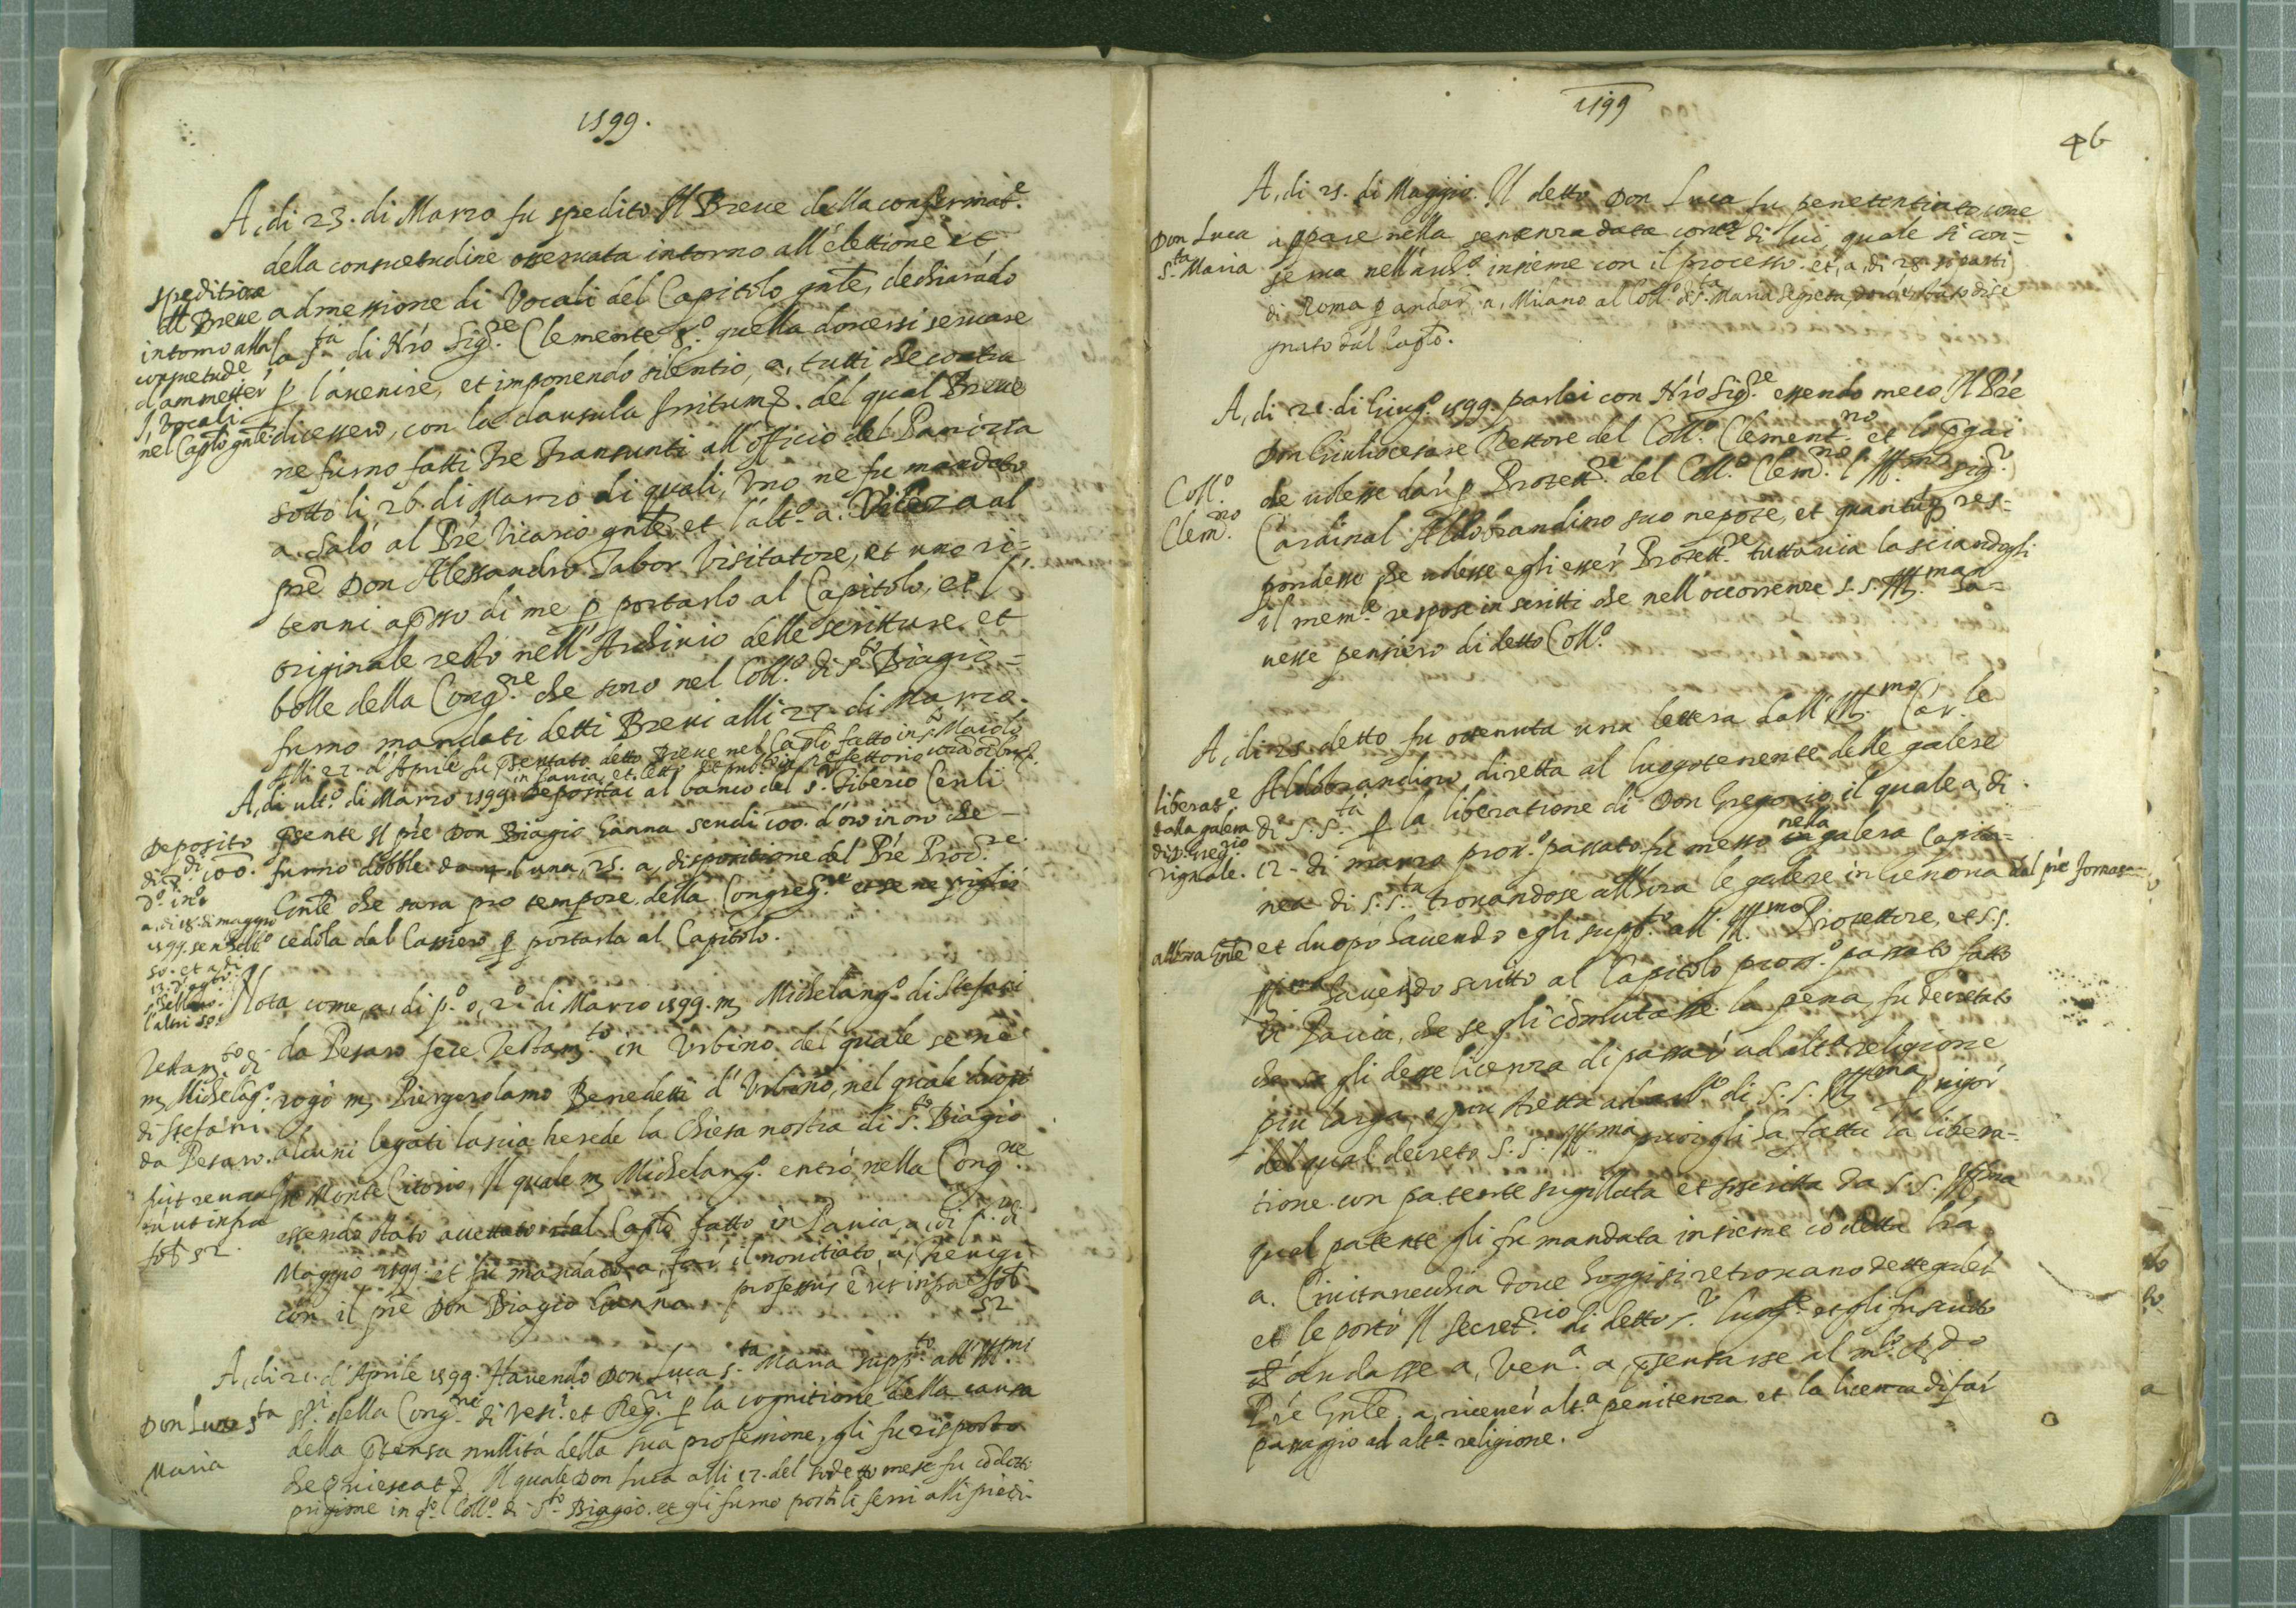 1599.
A, di 23. di Marzo fu spedito Il Breve della confermat.e
della consuetudine osservata intorno all'elettione et
admessione di Vocali del Capitolo gnle, dechiarado
la s.ta di Nro Sig.re Clemente 8.o quella doversi servare
p l'avenire, et imponendo silentio, a, tutti che contra
dicessero, con la clausula
del qual Breve
ne furno fatti tre transunti all'officio del
sotto li 26. di Marzo di quali, Uno ne fu mandato
a. Salò al Pre Vicario gnle, et l'alt.o a.
al
pre Don Alessandro Tabor Visitatore, et uno ri=
tenni apsso di me p portarlo al Capitolo, et l'
originale restò nell'Archivio delle scritture, et
bolle della Cong.ne che sono nel Coll.o di s.to Biagio=
furno mandati detti Brevi alli 27. di Marzo.
Alli 27. d'Aprile fu psentato detto Breve nel Caplo fatto in s. Maiolo
in Pavia, et letto
refettorio
spedition
del Breve
intorno alla
consuetude
d'ammetter
i, Vocali
nel Caplo gnle
A, di ult.o di Marzo 1599. depositai al banco del s.r Tiberio Ceuli
psente Il pre Don Biagio Ganna scudi 100. d'oro in oro che
furno dobble da 4. l'una, 25. a, dispositione del Pre Proc.re
Gnle che sara pro tempore della Congreg.ne
ne pigliai
cedola dal Cassiero p portarla al Capitolo.
Deposito
di
100.
d'o in o
a, di 18. di maggio
1599.
50. et a di
l'altri 50.
Nota come, a, di p.o o, 2.o di Marzo 1599. m Michelang.o di Stefani
da Pesaro fece Testam.to in Urbino del quale se ne
rogò m Piergerolamo Benedetti d'Urbino, nel quale duopò
alcuni legati lascia herede la Chiesa nostra di S.to Biagio
Monte Citorio, Il quale m Michelang.o entrò nella Cong.ne
essendo stato accettato dal Caplo fatto in Pavia, a, di p.o di
Maggio 1599. et fu mandato a, far il novitiato, a,
con il pre Don Biagio Ganna. professus è ut infra fol.
52
Testam.to di
m Michelag.o
di Stefani
da Pesaro.
ut infra
fol. 52.
A, di 21. d'Aprile 1599. Havendo Don Luca s.ta Maria supp.to all'Ill.mi
della Cong.ne di Vesc.i et Reg.ri p la cognitione della causa
della ptensa nullità della sua professione, gli fu risposto
che quiescat
Il quale Don Luca alli 27. del sodetto mese fu codotto
prigione in q.o Coll.o di S.to Biagio. et gli furno posti li ferri alli piedi.
Don Luca s.ta
Maria
1599
46
A, di 21. di Maggio. Il detto Don Luca fu penetentiato come
appare nella sentenza data cont.a di lui, quale si con=
serva nell'arch.o insieme con il processo. et, a, di 28. si partì
di Roma p andar, a, Milano al Coll.o di S.ta Maria Segreta, dov'è stato dise
gnato dal Caplo.
Don Luca
S.ta Maria
A, di 21. di Giug.o 1599. parlai con Nro Sig.re essendo meco Il Pre
Don Giuliocesare Rettore del Coll.o Clement.no et lo pgai
che volesse dar p Protett.re del Coll.o Clem.no l'Ill.mo Sig.r
Cardinal Aldobrandino suo nepote, et quantuq res=
pondesse che volesse egli esser Protett.re tuttavia lasciandogli
il mem.le respose in scritti che nell'occorrenze S. S. Ill.ma
ha=
vesse pensiero di detto Coll.o
Coll.o
Clem.no
A, di 25. detto fu ottenuta una lettera dall'Ill.mo Car.le
Aldobrandino diretta al luogotenente delle galere
di S. S.ta p la liberatione di Don Gregorio, il quale a, di
12. di marzo pros.o passato fu messo in nella galera Capita=
nea di S. S.ta trovandose all'hora le galere in Genova dal pre fornas
et duopò havendo egli supp.to all'Ill.mo Protettore, et S. S.
Ill.ma havendo scritto al Capitolo pross.o passato fatto
di Pavia, che se gli comutasse la pena, fu decretato
che se gli desse licenza di passar ad alt.a religione
più larga, o più stretta ad
di S. S. Ill.ma p vigor
del qual decreto S. S. Ill.ma poi gli ha fatta la libera=
tione con patente sigillata et sscritta da S. S. Ill.ma
qual patente gli fu mandata insieme co detta lra
a. Civitavechia dove hoggi si retrovano dette galere
et le portò Il Secret.rio di detto s.r luog.te et gli fu scritto
ch'andasse a, Ven.a a, psentarse al m.to R.do
Pre Gnle, a, ricever alt.a penitenza et la licenza di far
passaggio ad alt.a religione.
liberat.e
dalla galera
di D. Greg.rio
all'hora Gnle